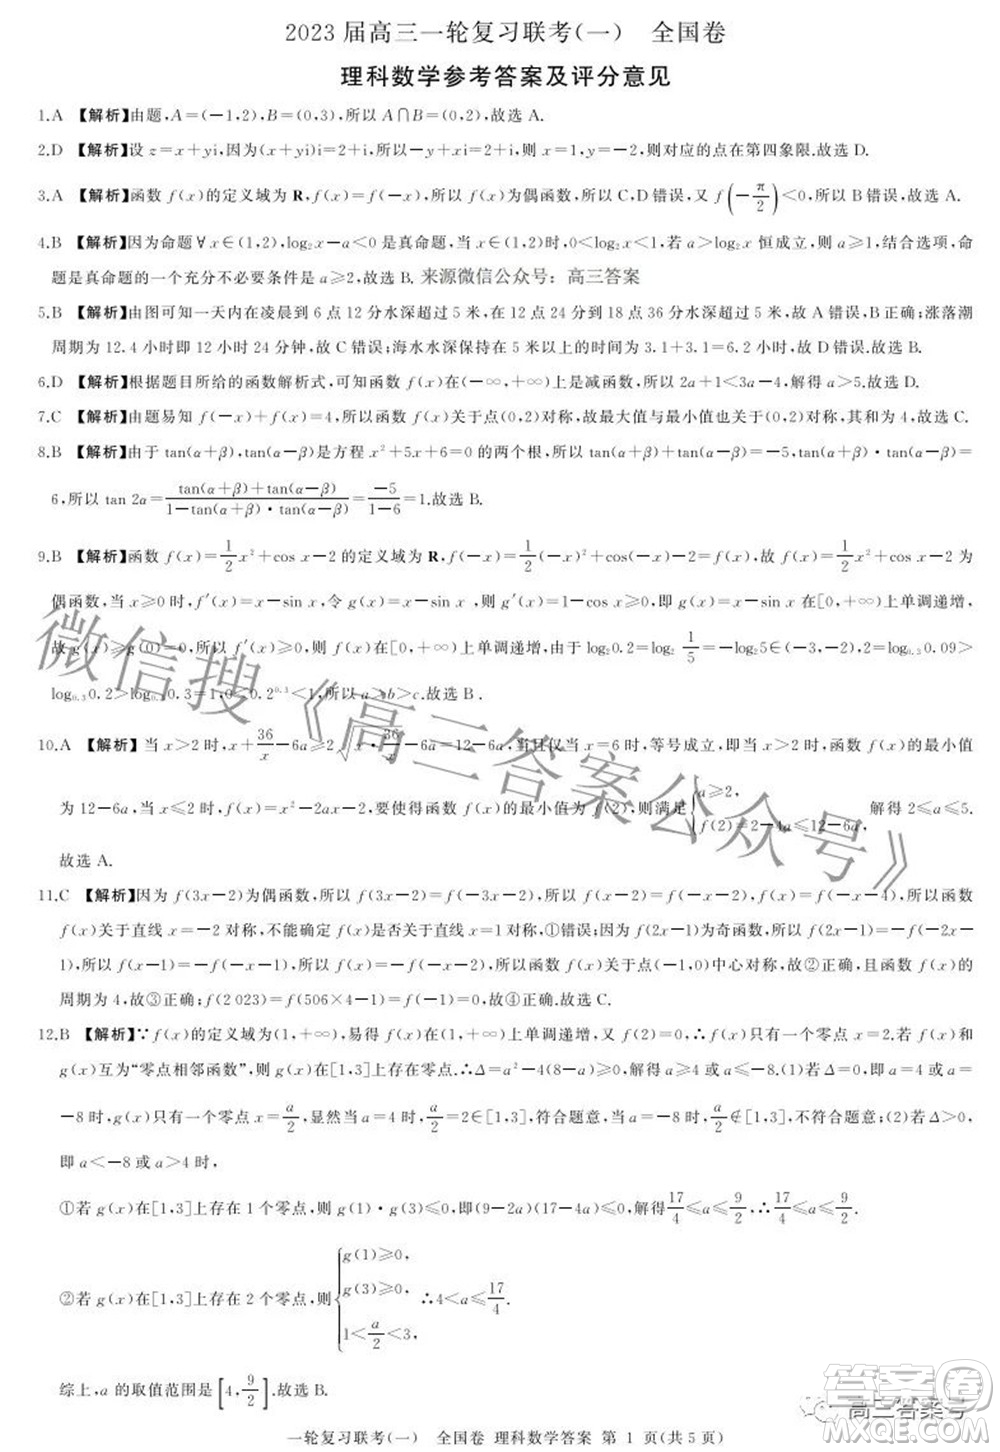 2023 届高三一轮复习联考(一) 全国卷
理科数学参考答案及评分意见
1.A 【解析】由题,A=(-1,2),B=(0,3),所以 A∩B=(0,2),故选 A.
2.D 【解析】设 z=x+yi,因为(x+yi)i=2+i,所以-y+xi=2+i,则 x=1,y=-2,则对应的点在第四象限.故选 D.
3.A 【解析】函数 f(x)的定义域为 R,f(x)=f(-x),所以 f(x)为偶函数,所以 C,D 错误,又 f(-π/2)<0,所以 B 错误,故选 A.
4.B 【解析】因为命题∀x∈(1,2),log₂x-a<0 是真命题,当 x∈(1,2)时,0<log₂x<1,若 a>log₂x 恒成立,则 a≥1,结合选项,命
题是真命题的一个充分不必要条件是 a≥2,故选 B. 来源微信公众号：高三答案
5.B 【解析】由图可知一天内在凌晨到 6 点 12 分水深超过 5 米,在 12 点 24 分到 18 点 36 分水深超过 5 米,故 A 错误,B 正确;涨落潮
周期为 12.4 小时即 12 小时 24 分钟,故 C 错误;海水水深保持在 5 米以上的时间为 3.1+3.1=6.2 小时,故 D 错误.故选 B.
6.D 【解析】根据题目所给的函数解析式,可知函数 f(x)在(-∞,+∞)上是减函数,所以 2a+1<3a-4,解得 a>5.故选 D.
7.C 【解析】由题易知 f(-x)+f(x)=4,所以函数 f(x)关于点(0,2)对称,故最大值与最小值也关于(0,2)对称,其和为 4,故选 C.
8.B 【解析】由于 tan(α+β),tan(α-β)是方程 x²+5x+6=0 的两个根,所以 tan(α+β)+tan(α-β)=-5,tan(α+β)·tan(α-β)=
6,所以 tan 2α=(tan(α+β)+tan(α-β))/(1-tan(α+β)·tan(α-β))=-5/(1-6)=1.故选 B.
9.B 【解析】函数 f(x)=1/2x²+cos x-2 的定义域为 R,f(-x)=1/2(-x)²+cos(-x)-2=f(x),故 f(x)=1/2x²+cos x-2 为
偶函数,当 x≥0 时,f′(x)=x-sin x,令 g(x)=x-sin x,则 g′(x)=1-cos x≥0,所以 g(x)在[0,+∞)上单调递增,
故 g(x)≥g(0)=0,所以 f′(x)≥0,所以 f(x)在[0,+∞)上单调递增,由于 log₂0.2=log₂1/5=-log₂5∈(-3,-2),log₀.₃0.09>
log₀.₃0.2>log₀.₃0.3=1,0<0.2⁰·³<1,所以 a>b>c.故选 B .
10.A 【解析】当 x>2 时,x+36/x-6a≥2√(x·36/x)-6a=12-6a,当且仅当 x=6 时,等号成立,即当 x>2 时,函数 f(x)的最小值
为 12-6a,当 x≤2 时,f(x)=x²-2ax-2,要使得函数 f(x)的最小值为 f(2),则满足{a≥2, f(2)=2-4a≤12-6a, 解得 2≤a≤5.
故选 A.
11.C 【解析】因为 f(3x-2)为偶函数,所以 f(3x-2)=f(-3x-2),所以 f(x-2)=f(-x-2),所以 f(x)=f(-x-4),所以函数
f(x)关于直线 x=-2 对称,不能确定 f(x)是否关于直线 x=1 对称,①错误;因为 f(2x-1)为奇函数,所以 f(2x-1)=-f(-2x-
1),所以 f(x-1)=-f(-x-1),所以 f(x)=-f(-x-2),所以函数 f(x)关于点(-1,0)中心对称,故②正确,且函数 f(x)的
周期为 4,故③正确;f(2 023)=f(506×4-1)=f(-1)=0,故④正确.故选 C.
12.B 【解析】∵f(x)的定义域为(1,+∞),易得 f(x)在(1,+∞)上单调递增,又 f(2)=0,∴f(x)只有一个零点 x=2.若 f(x)和
g(x)互为“零点相邻函数”,则 g(x)在[1,3]上存在零点.∴Δ=a²-4(8-a)=a²+4a-32.(1)若 Δ=0,即 a=4 或 a=
-8 时,g(x)只有一个零点 x=a/2,显然当 a=4 时,a/2=2∈[1,3],符合题意,当 a=-8 时,a/2∉[1,3],不符合题意;(2)若 Δ>0,
即 a<-8 或 a>4 时,
①若 g(x)在[1,3]上存在一个零点,则 g(1)·g(3)≤0,即(9-2a)(17-4a)≤0,解得17/4≤a≤9/2,∴17/4≤a≤9/2.
②若 g(x)在[1,3]上存在 2 个零点,则{g(1)≥0, g(3)≥0, 1<a/2<3, ∴4<a≤17/4.
综上,a 的取值范围是[4,9/2].故选 B.
一轮复习联考(一) 全国卷 理科数学答案 第 1 页(共 5 页)
微信搜《高三答案公众号》
高三答案号
答案圈
MXQE.COM